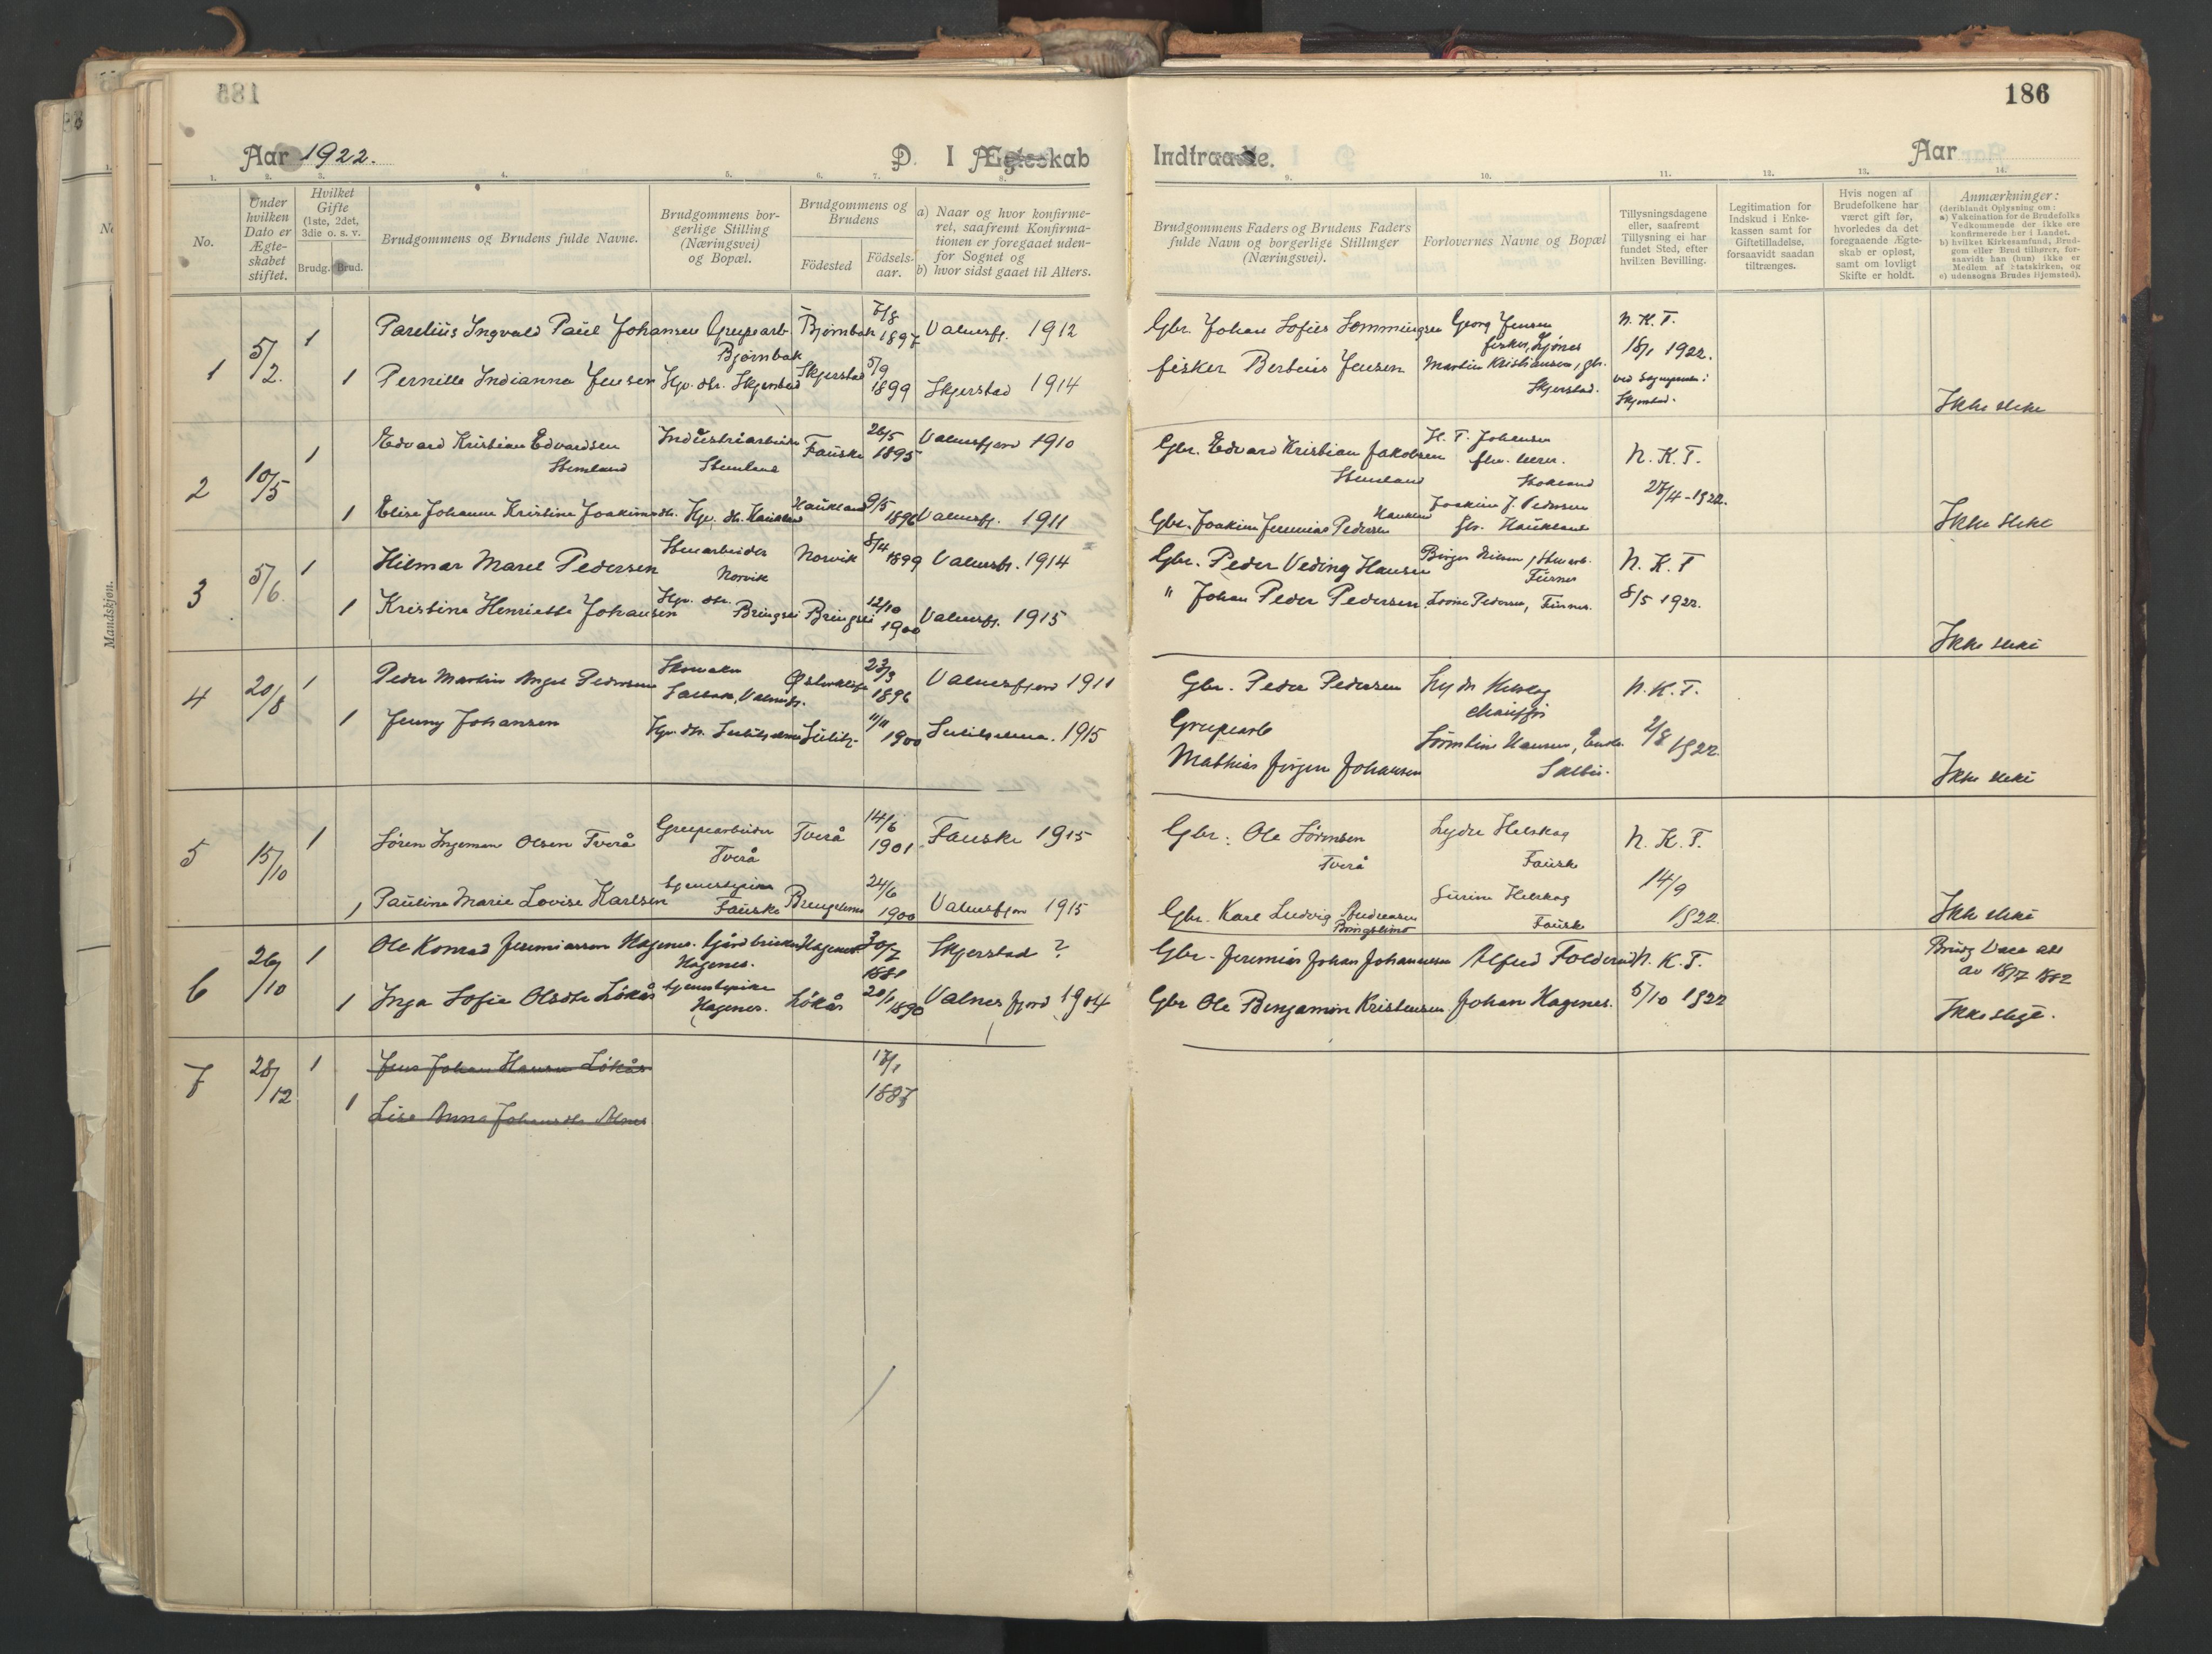 185
186
Aar 1922.
D. I Ægteskab
Indtraadte.
Aar
1. 2. 3. 4. 5. 6. 7. 8.
9. 10. 11. 12. 13. 14.
No.
Under hvilken Dato er Ægte-skabet stiftet.
Hvilket Gifte (1ste, 2det, 3die o. s. v.
Brudg. Brud.
Brudgommens og Brudens fulde Navne.
Brudgommens bor-gerlige Stilling (Næringsvei) og Bopæl.
Brudgommens og Brudens
Födested
Födsels-aar.
a) Naar og hvor konfirme-ret, saafremt Konfirma-tionen er foregaaet uden-for Sognet og
b) hvor sidst gaaet til Alters.
Brudgommens Faders og Brudens Faders fulde Navn og borgerlige Stillinger (Næringsvei).
Forlovernes Navne og Bopæl
Tillysningsdagene eller, saafremt Tillysning ei har fundet Sted, efter hvilken Bevilling.
Legitimation for Indskud i Enke-kassen samt for Giftetilladelse, forsaavidt saadan tiltrænges.
Hvis nogen af Brudefolkene har været gift før, hvorledes da det foregaaende Ægte-skab er opløst, samt om lovligt Skifte er holdt.
Anmærkninger:
(deriblandt Oplysning om:
a) Vakcination for de Brudefolks Vedkommende der ikke ere konfirmerede her i Landet.
b) hvilket Kirkesamfund, Brud-gom eller Brud tilhører, for-saavidt han (hun) ikke er Medlem af Statskirken, og
c) udensogns Brudes Hjemsted).
Mandskjøn.
1 5/2. 1 Parelius Ingvald Paul Johansen Grupearb. Bjørnbak Bjørnbak 7/8 1897 Valnesfj. 1912 Gbr. Johan Sofus Lommingsen Georg Jensen fisker, Ljønes N. K. T. 18/1 1922.
1 Pernille Indianna Jensen Hjv. dtr. Skjerstad Skjerstad 5/9 1899 Skjerstad 1914 fisker Berteus Jensen Martin Kristiansen, gbr. Skjerstad. ved Sognepresten i Skjerstad.
Ikke slekt
2 10/5 1 Edvard Kristian Edvardsen Stemland Industriarbeider Stemland Fauske 26/5 1895 Valnesfjord 1910 Gbr. Edvard Kristian Jakobsen Stemland H. T. Johansen Stokland N. K. T. 27/4-1922.
1 Elise Johanne Kristine Joakimsdtr. Hjv. dtr. Haukland Haukland 9/5 1896 Valnesfj. 1911 Gbr. Joakim Jeremias Pedersen Joakim J. Pedersen Gbr. Haukland
Ikke slekt
3 5/6. 1 Hilmar Marel Pedersen Stenarbeider Norvik Norvik 8/4 1899 Valnesfj. 1914 Gbr. Peder Veding Hansen Birger Nilsen, Stenarb. Furnes N. K. T
1 Kristine Henriette Johansen Hjv. dtr. Bringsli Bringsli 12/10 1900 Valnesfj. 1915 " Johan Peder Pedersen. Lovise Pedersen, Furnes. 8/5 1922.
Ikke slekt
4 20/8 1 Peder Martin Angel Pedersen Skomaker 23/3 1896 Valnesfjord 1911 Gbr. Peder Pedersen Lyder Helskog chauffør N. K. T.
1 Jenny Johansen Hjv. dtr. Sulitelma Sulit. 11/11 1900 Sulitelma. 1915 Grupearb Mathias Jørgen Johansen 2/8 1922.
Ikke slekt
5 15/10 1 Søren Ingeman Olsen Tverå Grupearbeider Tverå Tverå 14/6 1901 Fauske 1915 Gbr. Ole Sørensen Tverå Lyder Helskog Fauske N. K. T.
1 Pauline Marie Lovise Karlsen tjenestepike Fauske 24/6 1900 Valnesfjor 1915 Gbr. Karl Ludvig Andreasen Surine Helskog Fauske 14/9 1922.
Ikke slekt
6 26/10 1 Ole Konrad Jeremiassen Hagenes. Gårdbruker Hagenes. Hagenes. 30/7 1881 Skjerstad ? Gbr. Jeremias Johan Johannesen Alfred Folderud N. K. T. Brudg Vacc att av 18/7 1882
1 Inga Sofie Olsdtr Løkås tjenestepike Hagenes. Løkås 20/1 1890 Valnesfjord 1904 Gbr Ole Benjamin Kristensen Johan Hagenes. 5/10 1922
Ikke slegt.
7 28/12 1 Jens Johan Hansen Løkås 17/1 1887
1 Lise Anna Johansdtr